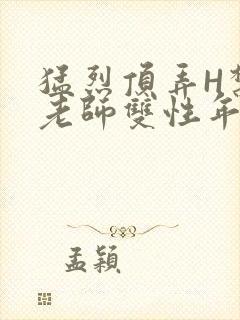 猛烈頂弄H
老師雙性年
孟穎